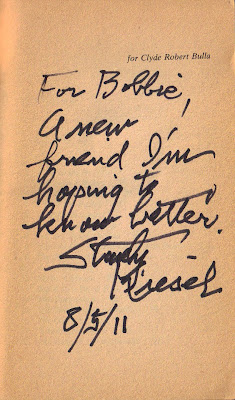 for Clyde Robert Bulla
For Bobbie,
A new
friend I'm
hoping to
know better.
8/5/11